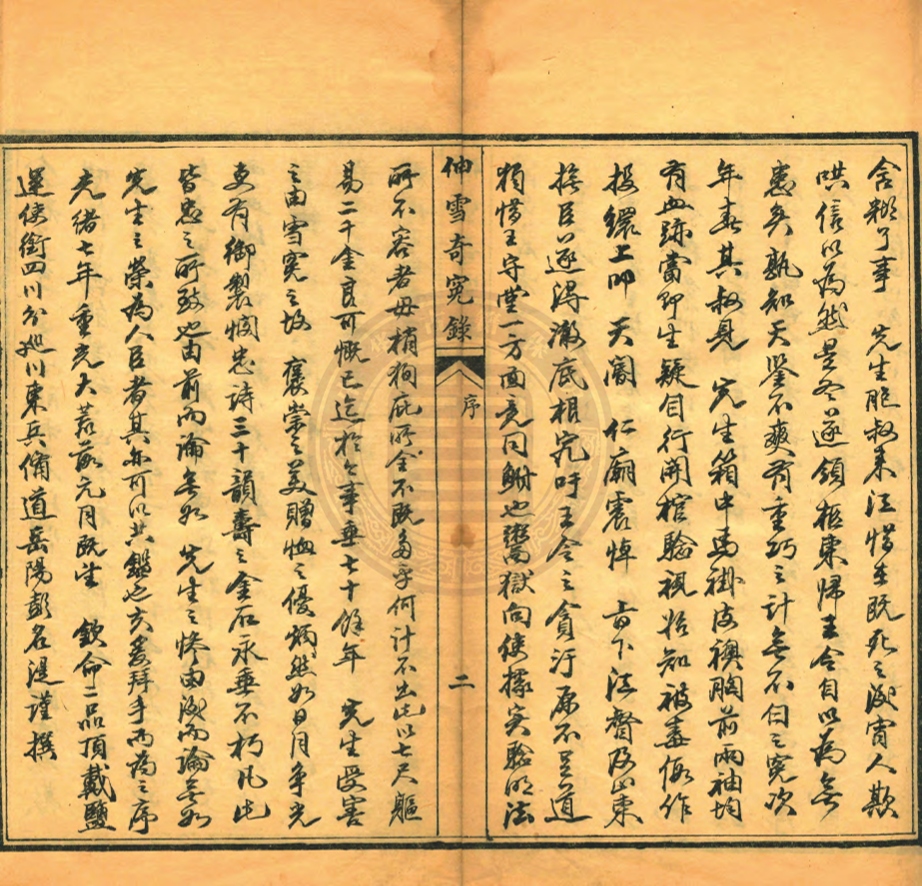 含糊了事　先生胞叔來江惜在既死之後宵人欺
哄信以為然是冬遂領柩東歸王令自以為無
患矣孰知天鑒不爽前重巧之計無不白之冤次
年春其叔見　先生箱中馬褂海襖胸前兩袖均
有血跡當即生疑自行開棺驗視始知被毒假作
投繯上叩　天閽　仁廟震悼　旨下江督及山東
撫臣遂得澈底根究吁王令之貪汙原不足道
獨惜王守堂一方面竟同鮒也鬻獄向使據實驗明法
伸雪奇冤錄
序
二
所不容者毋稍狥庇所全不既多乎何計不出此以七尺軀
易二千金良可慨已迄於今事垂七十餘年　先生受害
之由雪冤之故　褒崇之美贈恤之優炳然如日月爭光
更有御製憫忠詩三十韻壽之金石永垂不朽凡此
皆忠之所致也由前而論無如　先生之慘由後而論無如
先生之榮為人臣者其亦可以共鑒也夫爰拜手而為之序
光緒七年重光大荒落元月既望　欽命二品頂戴鹽
運使銜四川分巡川東兵備道岳陽彭名湜謹撰